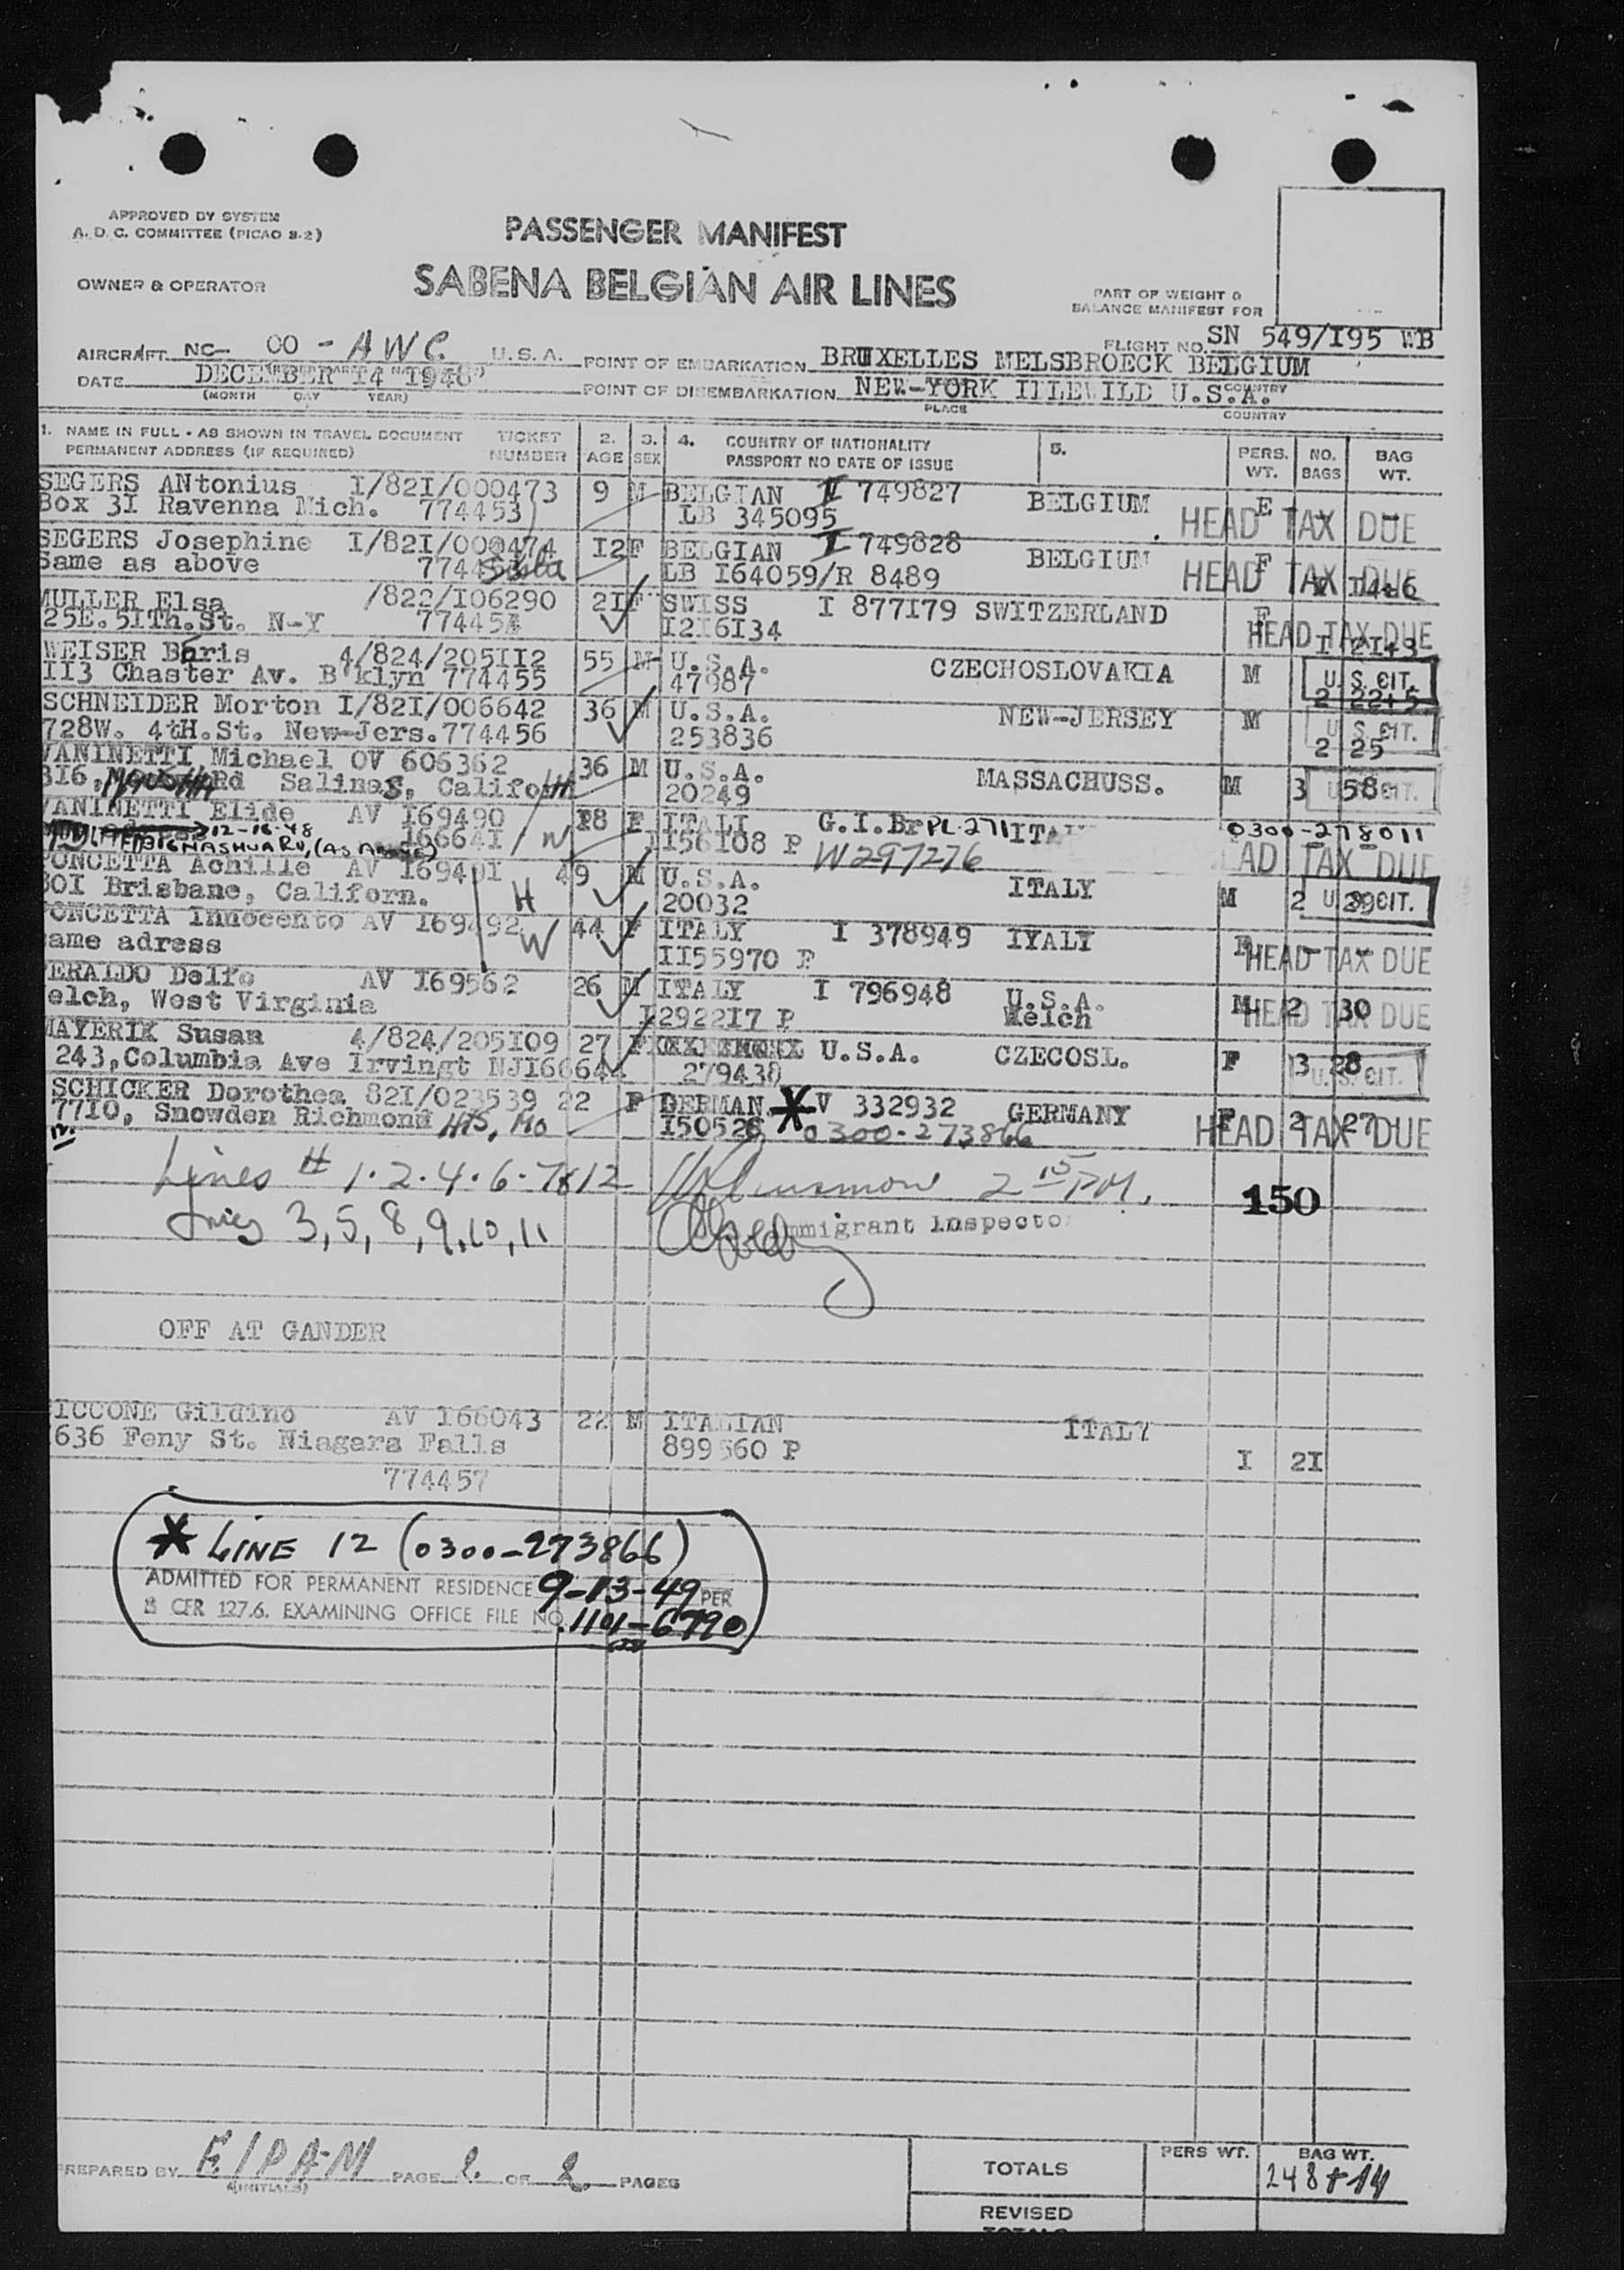 APPROVED BY SYSTEM
A. D. C. COMMITTEE (PICAO S-2)
PASSENGER MANIFEST
OWNER & OPERATOR
SABENA BELGIAN AIR LINES
PART OF WEIGHT &
BALANCE MANIFEST FOR
FLIGHT NO. SN 549/I95 WB
AIRCRAFT NC- OO - AWC U.S.A. POINT OF EMBARKATION BRUXELLES MELSBROECK BELGIUM
DATE DECEMBER I4 I948 POINT OF DISEMBARKATION NEW-YORK U.S.A.
(MONTH DAY YEAR) PLACE COUNTRY
1. NAME IN FULL - AS SHOWN IN TRAVEL DOCUMENT TICKET 2. 3. 4. COUNTRY OF NATIONALITY 5. PERS. NO. BAG
PERMANENT ADDRESS (IF REQUIRED) NUMBER AGE SEX PASSPORT NO DATE OF ISSUE WT. BAGS WT.
SEGERS ANtonius I/82I/000473 9 M BELGIAN I 749827 BELGIUM
Box 3I Ravenna Mich. 774453 LB 345095 HEAD TAX DUE
SEGERS Josephine I/82I/000474 I2 F BELGIAN I 749828 BELGIUM F
Same as above LB I64059/R 8489 HEAD TAX DUE
MULLER Elsa /822/I06290 2I F SWISS I 877I79 SWITZERLAND F
25E.5ITh.St. N-Y 774454 I2I6I34 HEAD TAX DUE
WEISER Boris 4/824/205II2 55 M U.S.A. CZECHOSLOVAKIA M
II3 Chaster Av. B'klyn 774455 47987 U.S. CIT.
SCHNEIDER Morton I/82I/006642 36 M U.S.A. NEW-JERSEY M
728W. 4tH.St. New-Jers.774456 253836 U.S. CIT. 2 25
VANINETTI Michael OV 606362 36 M U.S.A. MASSACHUSS. M 3 58
20249
VANINETTI Elide AV I69490 F G.I.Br PL.271 0300-278011
12-16-48 I6664I / W II56I08 P W297276 TAX DUE
316 NASHUA RD, (AS ABOVE)
Achille AV I6949I 49 M U.S.A. ITALY M 2 29
Brisbane, Californ. H 20032 U.S. CIT.
Innocento AV I69492 44 F ITALY I 378949 ITALY F
same adress W II55970 P HEAD TAX DUE
AV I69562 26 M ITALY I 796948 U.S.A. M 2 30
Welch, West Virginia I2922I7 P Welch HEAD TAX DUE
MAYERIK Susan 4/824/205I09 27 F U.S.A. CZECOSL. F 3 28
243,Columbia Ave Irvingt NJI66644 279438 U.S. CIT.
SCHICKER Dorothea 82I/023539 22 F GERMAN * V 332932 GERMANY F 2 27
77I0, Snowden Richmond HTS, MO I50526 0300-273866 HEAD TAX DUE
Lines # 1.2.4.6.7&12 2 15 PM.
150
Lines 3,5,8,9,10,11
Immigrant Inspector
OFF AT GANDER
Gildino AV I66043 22 M ITALIAN ITALY
636 Feny St. Niagara Falls 899560 P I 2I
774457
* LINE 12 (0300-273866)
ADMITTED FOR PERMANENT RESIDENCE 9-13-49 PER
8 CFR 127.6. EXAMINING OFFICE FILE NO. 1101-6790
PREPARED BY PAGE 2. OF 2. PAGES
(INITIALS)
TOTALS PERS WT. BAG WT.
248+14
REVISED
TOTALS